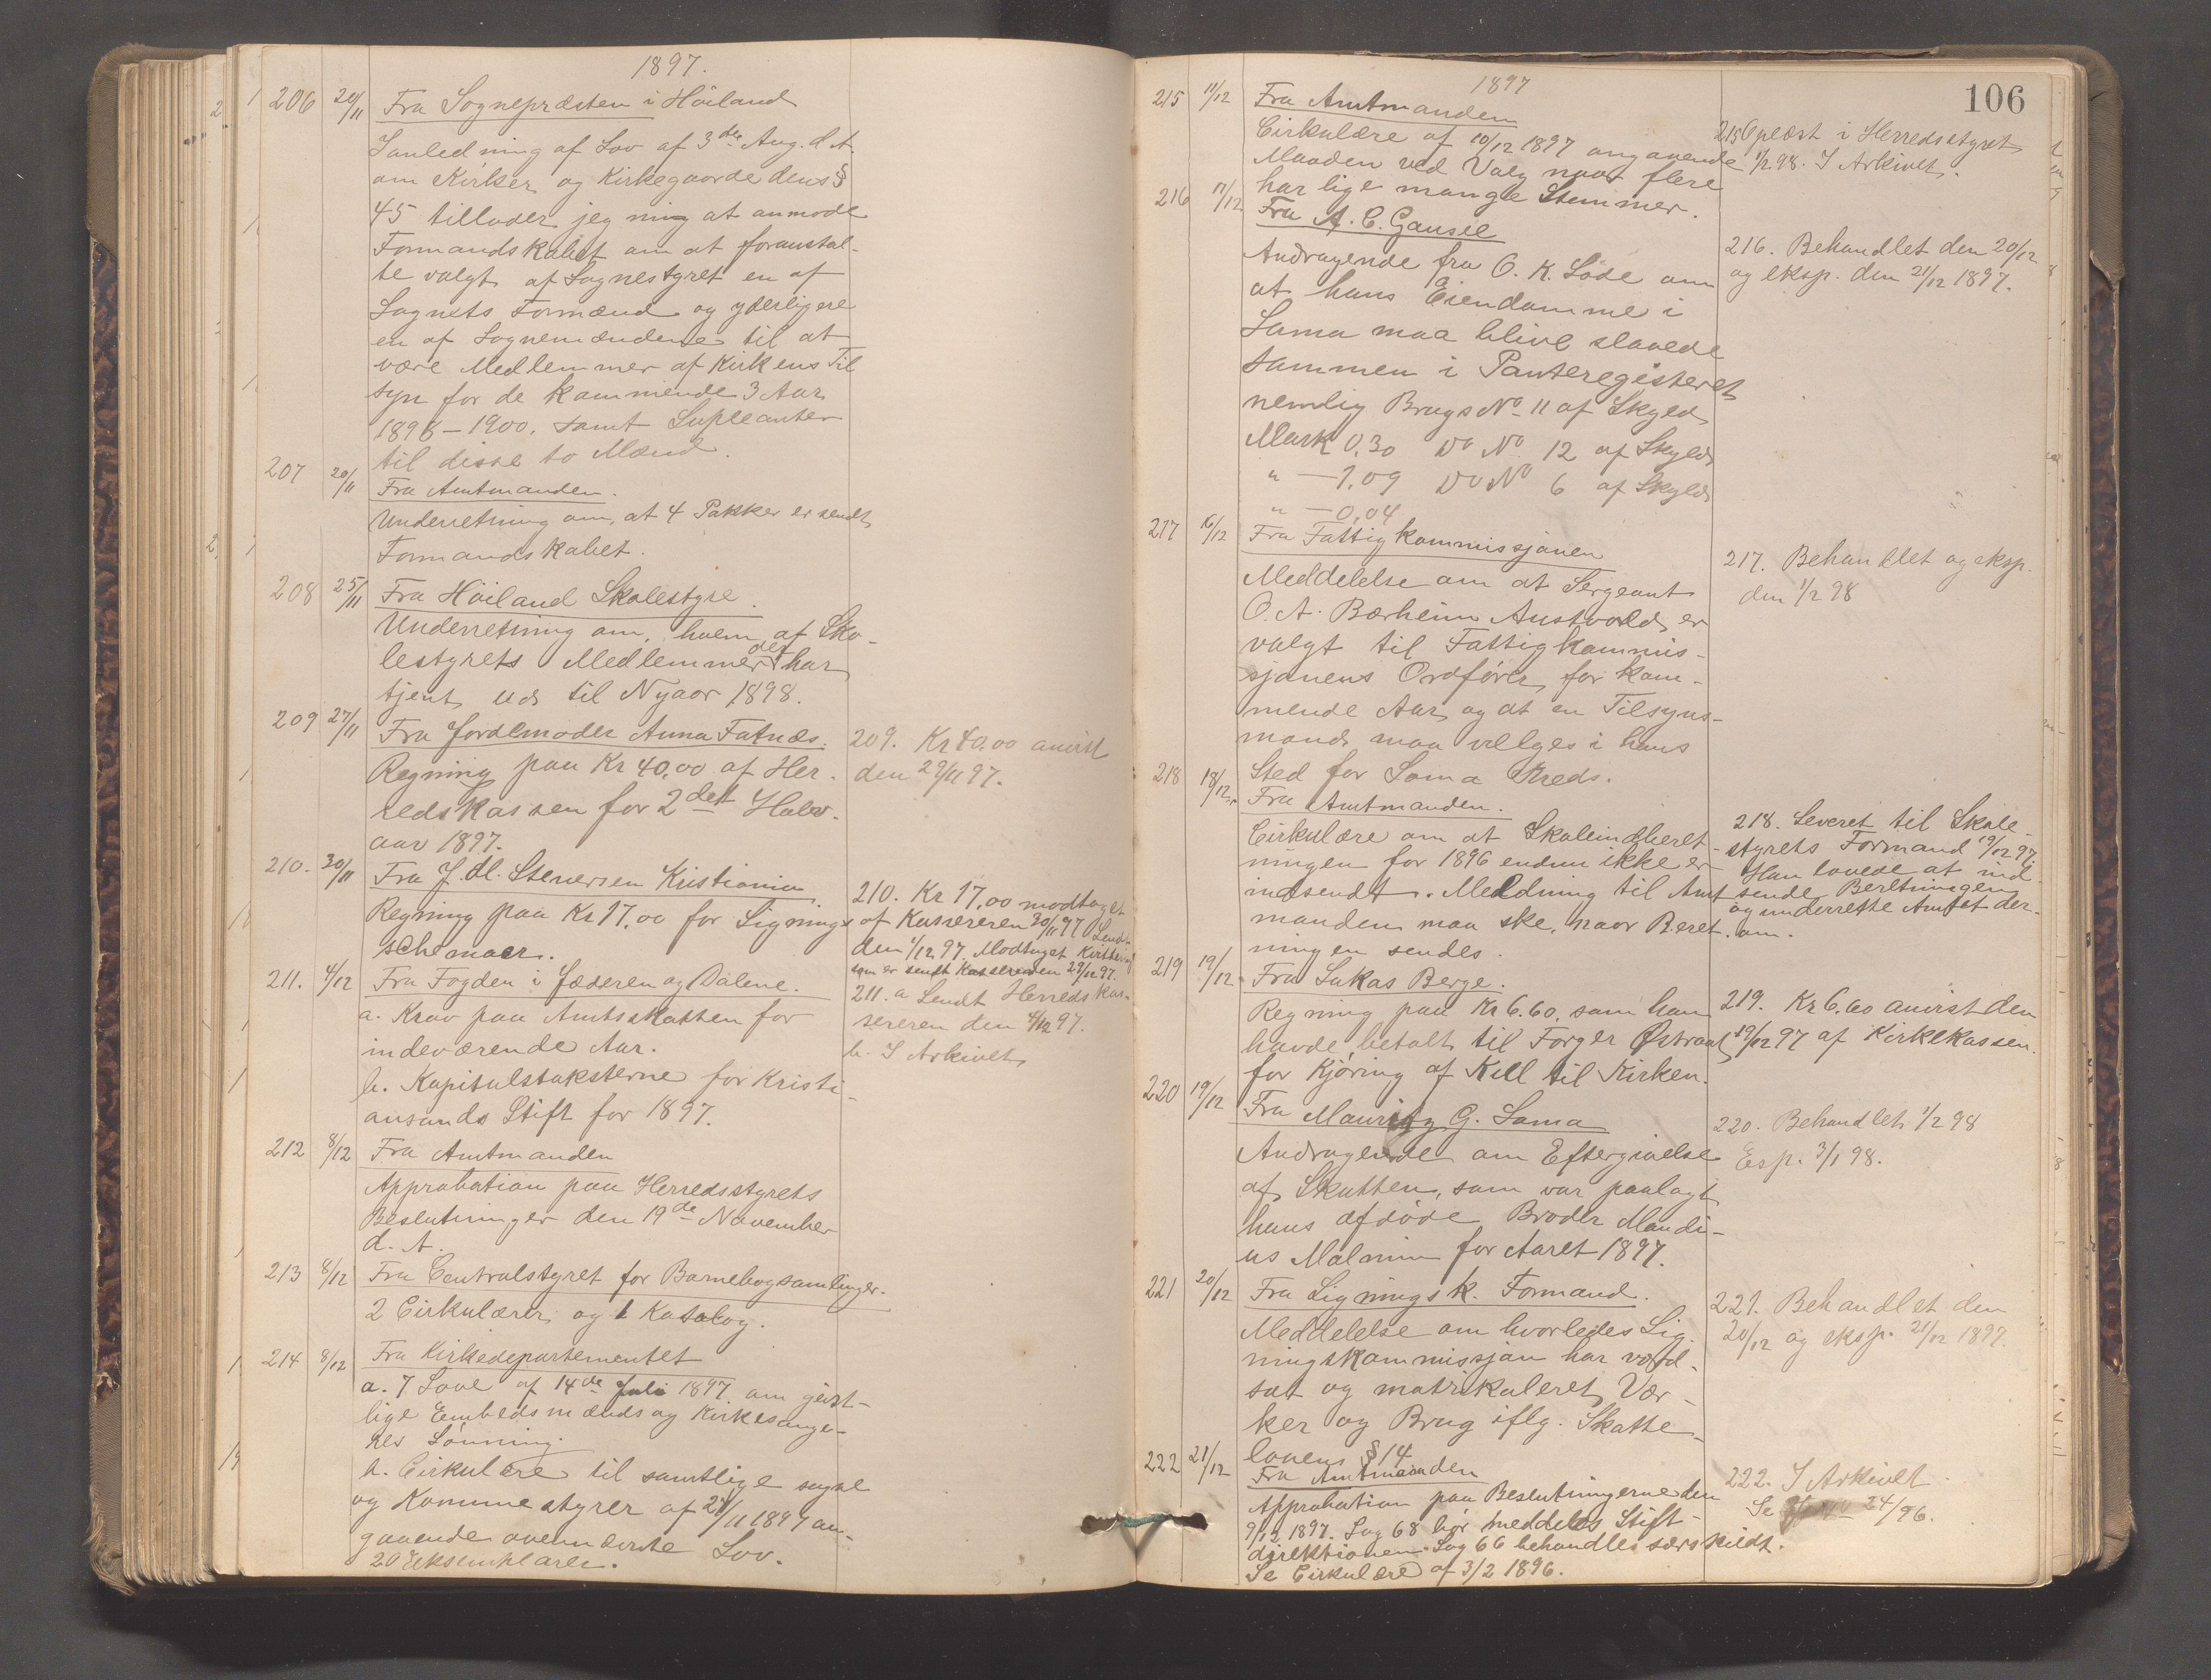 1897.
206 20/11 Fra Sognepræsten i Höiland
I anledning af Lov af 3die Aug. d. A.
om Kirker og Kirkegaarde dens §
45 tillader jeg mig at anmode
Formandskabet om at foranstal-
te valgt af Sognestyret en af
Sognets Formænd og yderligere
en af Sognemændene til at
være Medlemmer af Kirkens Til
syn for de kommende 3 Aar
1898–1900. samt Supleanter
til disse to Mænd.
207 20/11 Fra Amtmanden.
Underretning om, at 4 Pakker er sendt
Formandskabet.
208 25/11 Fra Höiland Skolestyre.
Underretning om, hvem af Sko-
lestyrets Medlemmer der har
tjent ud til Nyaar 1898.
209 27/11 Fra Jordemoder Anna Fatnæs.
Regning paa Kr 40,00 af Her-
redskassen for 2det Halv-
aar 1897.
209. Kr 40,00 anvist
den 29/11 97.
210. 30/11 Fra J. M. Stenersen Kristiania
Regning paa Kr 17,00 for Lignings
schemaer.
210. Kr 17,00 modtaget
af Kassereren 30/11 97 Sendt
den 1/12 97. Modtaget Kvittering
som er sendt Kassereren 29/12 97.
211. 4/12 Fra Fogden i Jæderen og Dalene.
a. Krav paa Amtsskatten for
indeværende Aar.
b. Kapitalstaksterne for Kristi-
ansands Stift for 1897.
211. a Sendt Herredskas-
sereren den 4/12 97.
b. I Arkivet
212 8/12 Fra Amtmanden
Approbation paa Herredsstyrets
Beslutninger den 19de November
d. A.
213 8/12 Fra Centralstyret for Barnebogsamlinger.
2 Cirkulærer og 1 Katalog.
214 8/12 Fra Kirkedepartementet
a. 7 Love af 14de Juli 1897 om geist-
lige Embedsmænds og Kirkesange-
res Lönning.
b. Cirkulære til samtlige sogne
og Kommunestyrer af 27/11 1897 an-
gaaende ovennævnte Lov.
20 Eksemplarer.
1897
106
215 11/12 Fra Amtmanden
Cirkulære af 10/12 1897 angaaende
Maaden ved Valg naar flere
har lige mange Stemmer.
215 Oplæst i Herredsstyret
1/2 98. I Arkivet.
216 17/12 Fra A. C. Gausel
Andragende fra O. K. Löde om
at hans Eiendomme i
Soma maa blive slaaede
sammen i Panteregisteret
nemlig Brugs No 11 af Skyld
Mark 0,30 Do No 12 af Skyld
" — 1,09 Do No 6 af Skyld
" — 0,04
216. Behandlet den 20/12
og eksp. den 21/12 1897.
217 16/12 Fra Fattigkommissjonen
Meddelelse om at Sergeant
O. A. Bærheim Austvold er
valgt til Fattigkommis-
sjonens Ordförer for kom-
mende Aar og at en Tilsyns-
mand maa vælges i hans
Sted for Soma Kreds.
217. Behandlet og eksp.
den 1/2 98
218 18/12 Fra Amtmanden.
Cirkulære om at Skoleindberet-
ningen for 1896 endnu ikke er
indsendt. Meldning til Amt
manden maa ske, naar Beret-
ningen sendes.
218. Leveret til Skole-
styrets Formand 19/12 97.
Han lovede at ind-
sende Beretningen
og underrette Amtet der-
om.
219 19/12 Fra Lukas Berge.
Regning paa Kr 6.60, som han
havde betalt til Torger Østraat
for Kjöring af Kull til Kirken.
219. Kr 6,60 anvist den
19/12 97 af Kirkekassen.
220 19/12 Fra Mauritz G. Soma
Andragende om Eftergivelse
af Skatten, som var paalagt
hans afdöde Broder Mandi-
us Malmin for Aaret 1897.
220. Behandlet 1/2 98
Esp. 3/1 98.
221 20/12 Fra Lignings k. Formand.
Meddelelse om hvorledes Lig-
ningskommissjon har værd-
sat og matrikuleret Vær-
ker og Brug iflg. Skatte-
lovens § 14
221. Behandlet den
20/12 og eksp. 21/12 1897.
222 21/12 Fra Amtmanden
Approbation paa Beslutningerne den
9/12 1897. Sag 68 bör meddeles Stift-
direktionen. Sag 66 behandles særskildt.
Se Cirkulære af 3/2 1896.
222. I Arkivet
Se 24/96.